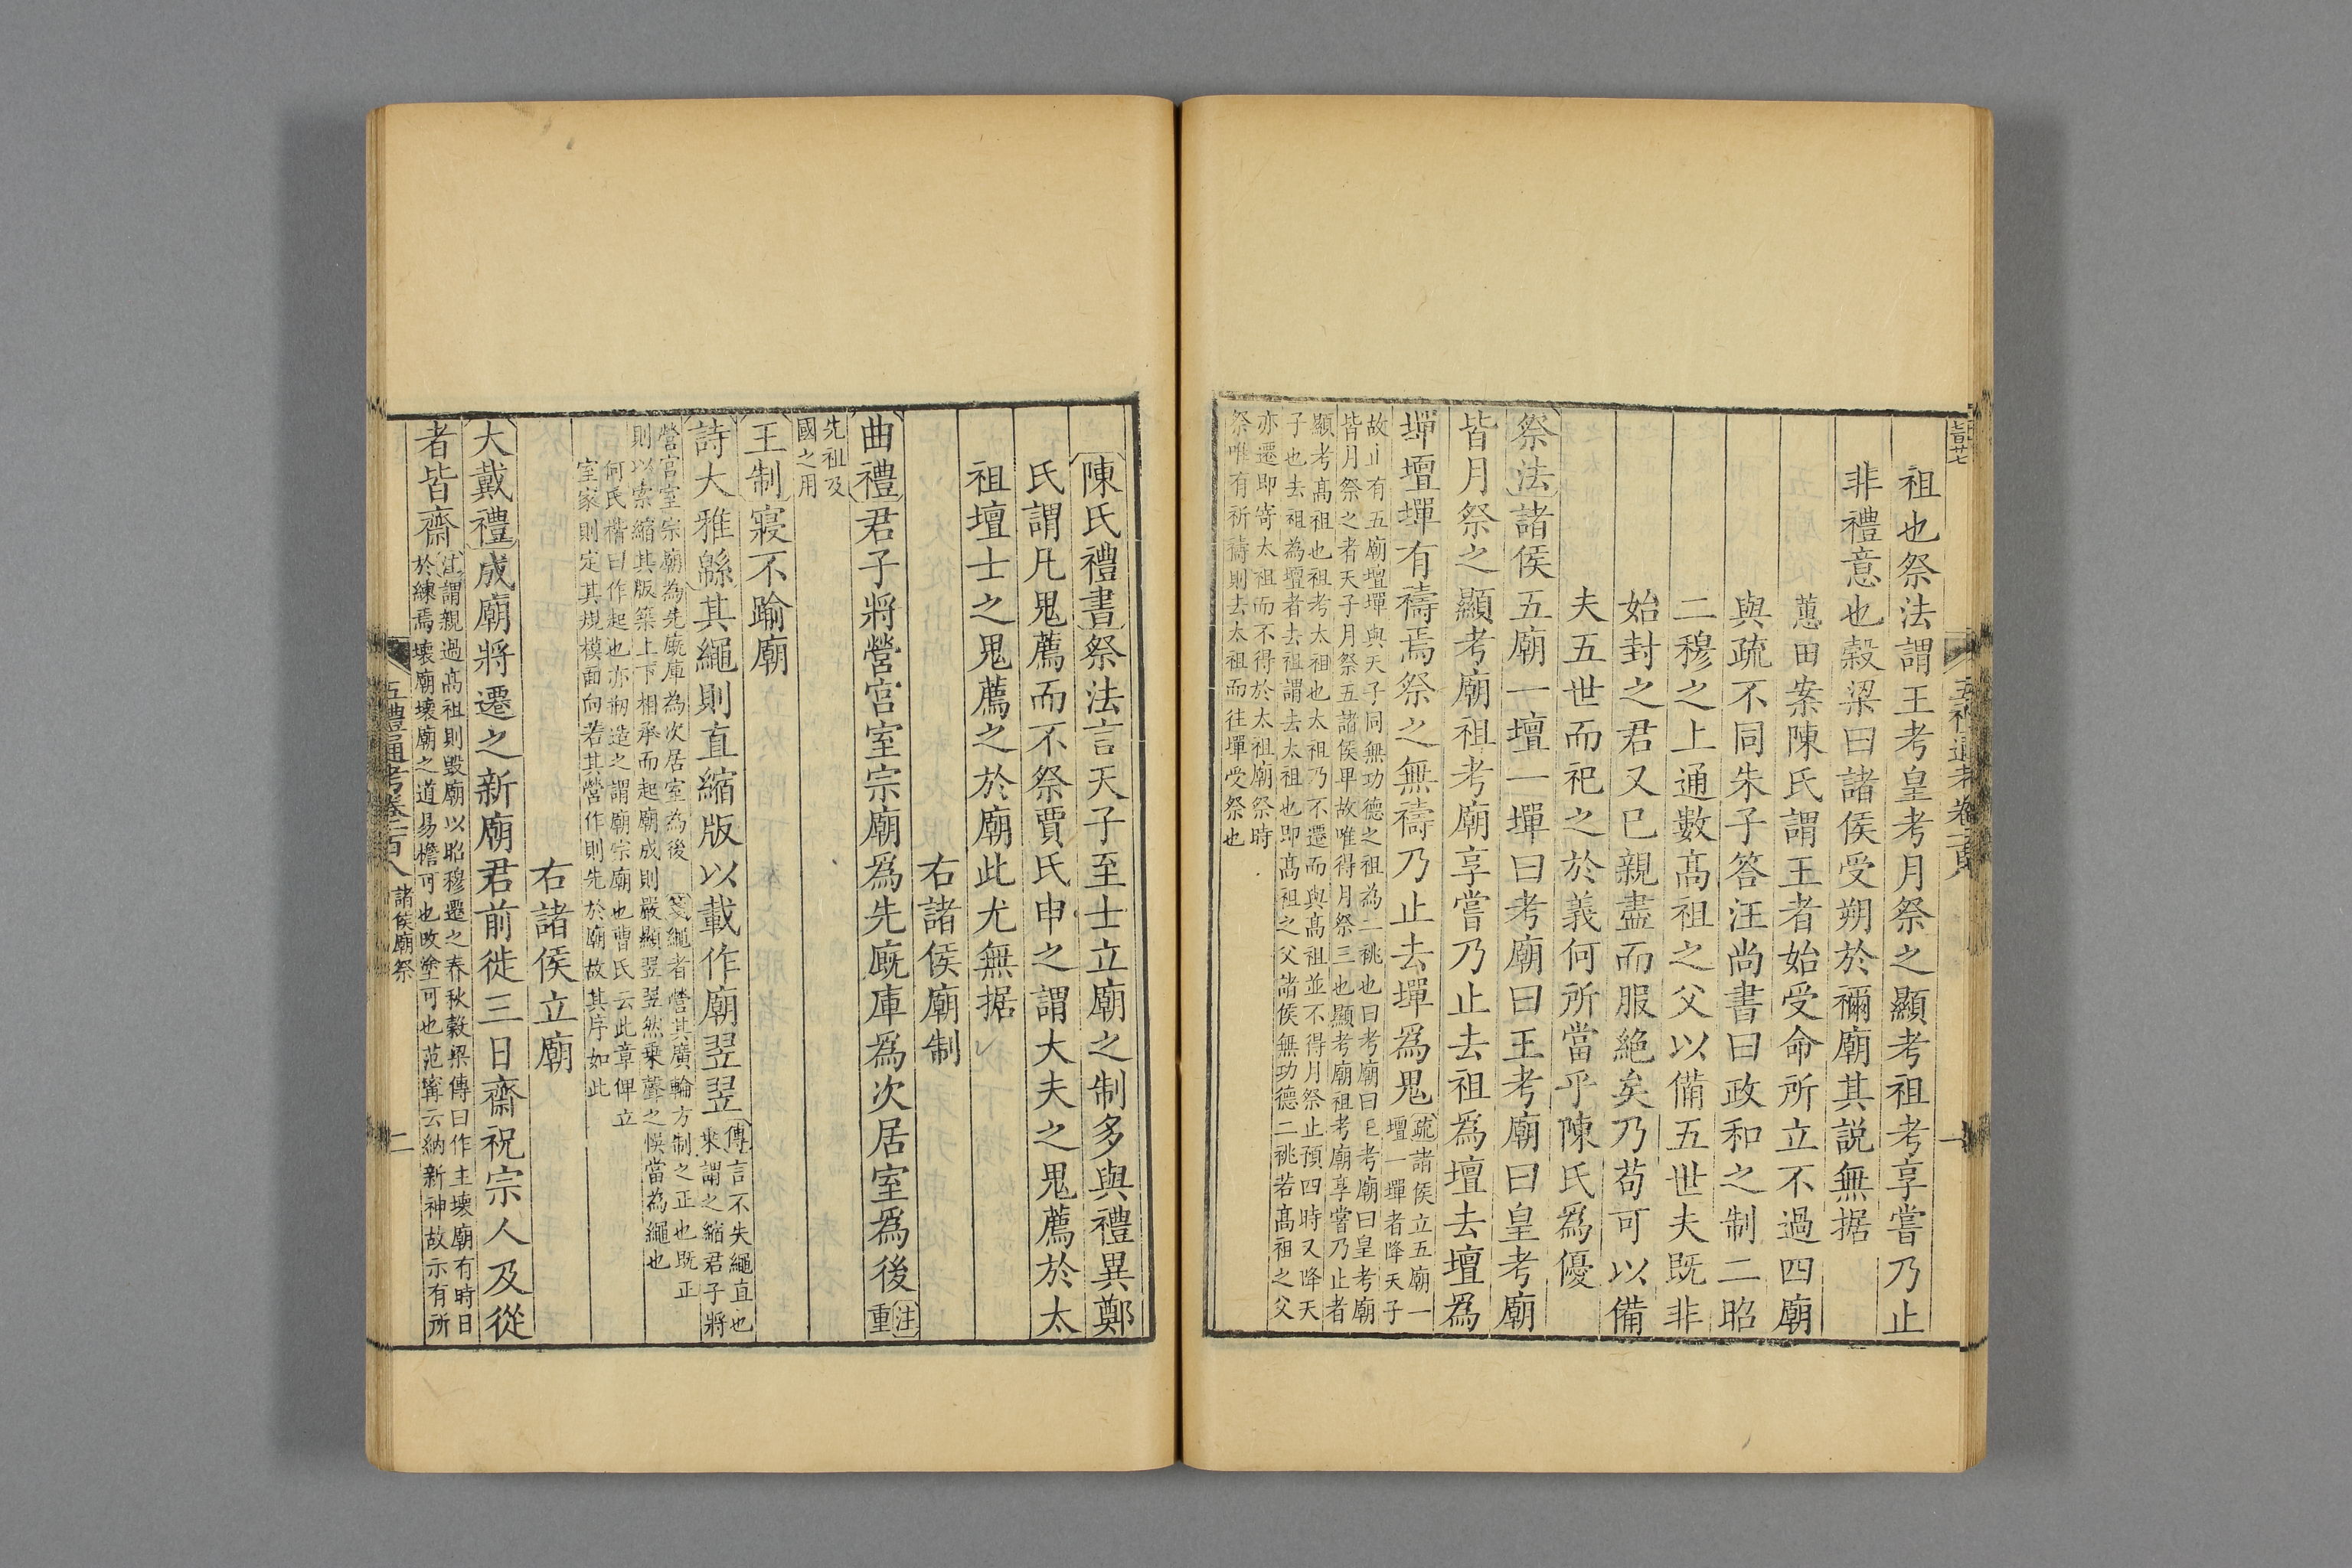 五禮通考卷一百八
一
祖也祭法謂王考皇考月祭之顯考祖考享嘗乃止
非禮意也穀梁曰諸侯受朔於禰廟其説無据
蕙田案陳氏謂王者始受命所立不過四廟
與疏不同朱子答汪尚書曰政和之制二昭
二穆之上通數髙祖之父以備五世夫既非
始封之君又已親盡而服絶矣乃苟可以備
夫五世而祀之於義何所當乎陳氏爲優
祭法諸侯五廟一壇一墠曰考廟曰王考廟曰皇考廟
皆月祭之顯考廟祖考廟享嘗乃止去祖爲壇去壇爲
墠壇墠有禱焉祭之無禱乃止去墠爲鬼
疏諸侯立五廟一
壇一墠者降天子
故止有五廟壇墠與天子同無功德之祖為二祧也曰考廟曰王考廟曰皇考廟
皆月祭之者天子月祭五諸侯卑故唯得月祭三也顯考廟祖考廟享嘗乃止者
顯考髙祖也祖考太祖也太祖乃不遷而與髙祖並不得月祭止預四時又降天
子也去祖為壇者去祖謂去太祖也即髙祖之父諸侯無功德二祧若髙祖之父
亦遷即寄太祖而不得於太祖廟祭時
祭唯有祈禱則去太祖而往墠受祭也
陳氏禮書祭法言天子至士立廟之制多與禮異鄭
氏謂凡鬼薦而不祭賈氏申之謂大夫之鬼薦於太
祖壇士之鬼薦之於廟此尤無据
右諸侯廟制
曲禮君子將營宫室宗廟爲先廐庫爲次居室爲後
注
重
先祖及
國之用
王制寢不踰廟
詩大雅緜其繩則直縮版以載作廟翌翌
傳言不失繩直也
乘謂之縮君子將
營宫室宗廟為先廐庫為次居室為後箋繩者營其廣輪方制之正也既正
則以索縮其版築上下相承而起廟成則嚴顯翌翌然乗聲之悞當為繩也
何氏楷曰作起也亦剏造之謂廟宗廟也曹氏云此章俾立
室家則定其規模面向若其營作則先於廟故其序如此
右諸侯立廟
大戴禮成廟將遷之新廟君前徙三日齋祝宗人及從
者皆齋
注謂親過髙祖則毁廟以昭穆遷之春秋穀梁傳曰作主壊廟有時日
於練焉壊廟壊廟之道易檐可也改塗可也范甯云納新神故示有所
五禮通考卷一百八
諸侯廟祭
二